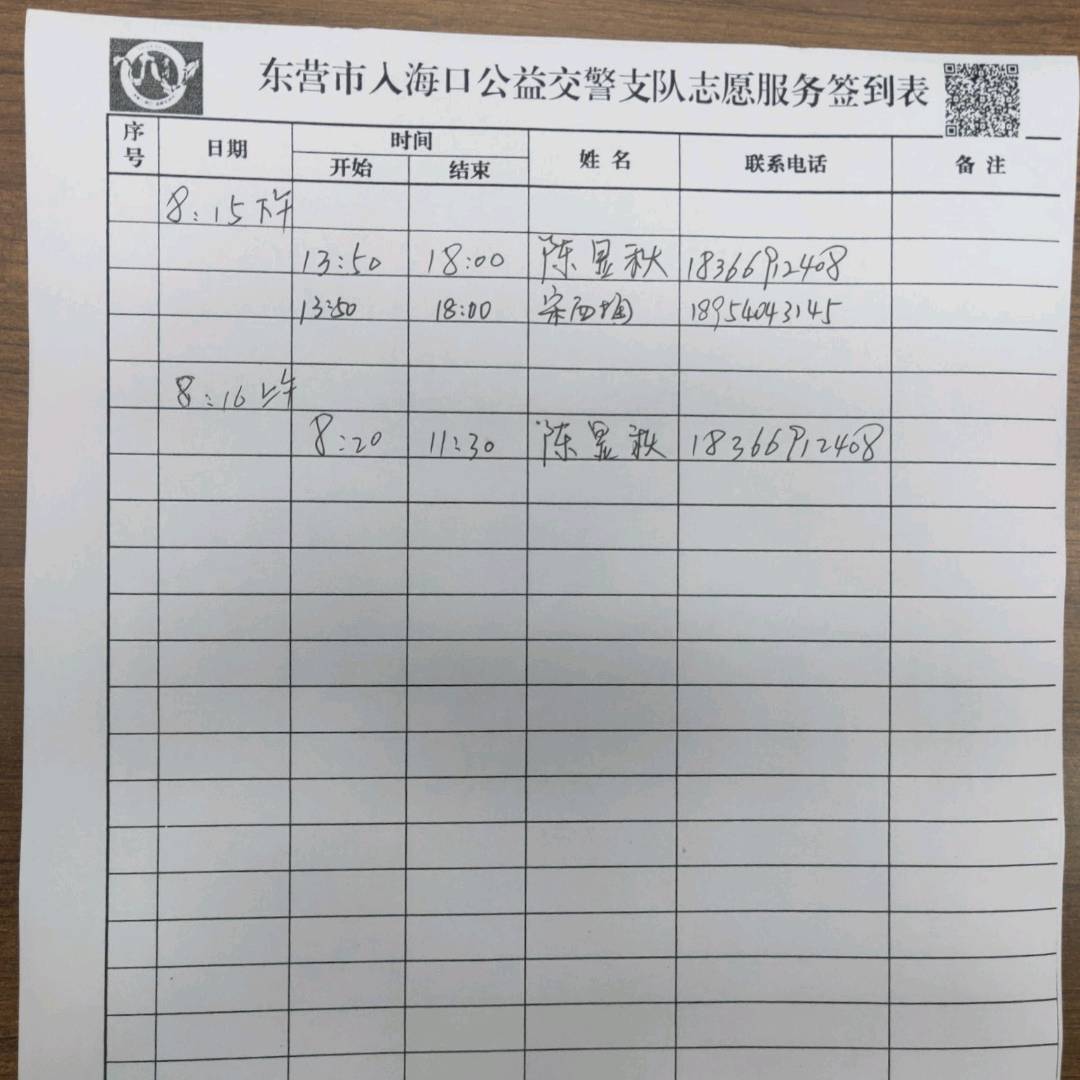 东营市入海口公益交警支队志愿服务签到表
序号 日期 时间 姓名 联系电话 备注
开始 结束
8:15下午
13:50 18:00 陈显秋 18366912408
13:50 18:00 18954043145
8:16上午
8:20 11:30 陈显秋 18366912408